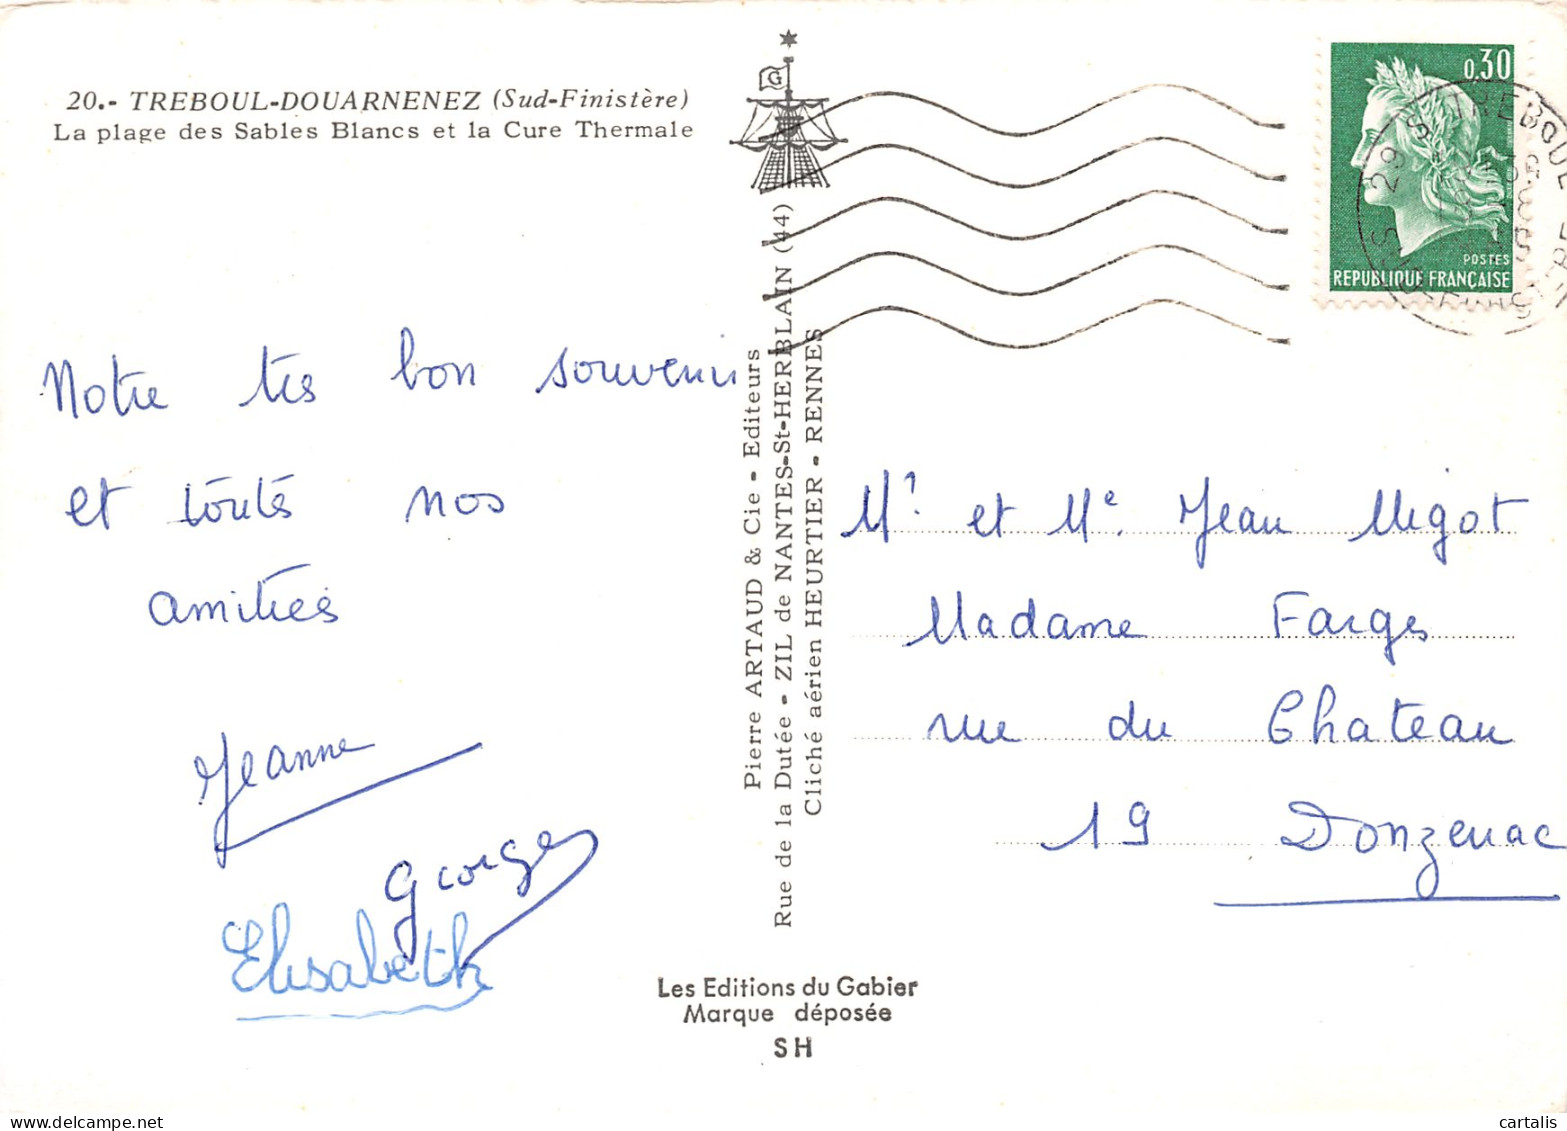 20.- TREBOUL-DOUARNENEZ (Sud-Finistère)
La plage des Sables Blancs et la Cure Thermale
G
0,30
POSTES
REPUBLIQUE FRANÇAISE
29 S TREBOUL
Notre très bon souvenir
et toutes nos
amitiés
Jeanne
Georges
Elisabeth
Pierre ARTAUD & Cie - Editeurs
Rue de la Dutée - ZIL de NANTES-St-HERBLAIN (44)
Cliché aérien HEURTIER - RENNES
Mr. et Me. Jean Migot
Madame Farges
rue du Chateau
19 Donzenac
Les Editions du Gabier
Marque déposée
SH
cartalis